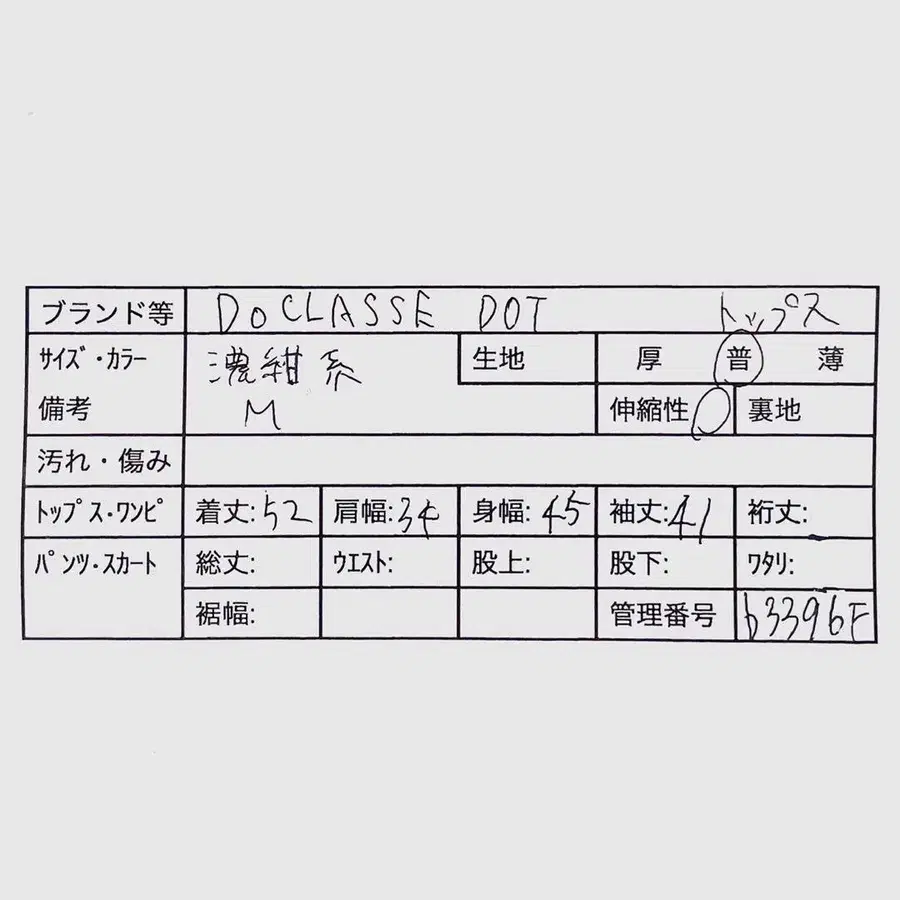 ブランド等 DoCLASSE DOT トップス
サイズ・カラー 濃紺系 生地 厚 普 薄
備考 M 伸縮性 裏地
汚れ・傷み
トップス・ワンピ 着丈:52 肩幅:34 身幅:45 袖丈:41 裄丈:
パンツ・スカート 総丈: ウエスト: 股上: 股下: ワタリ:
裾幅: 管理番号 b3396F